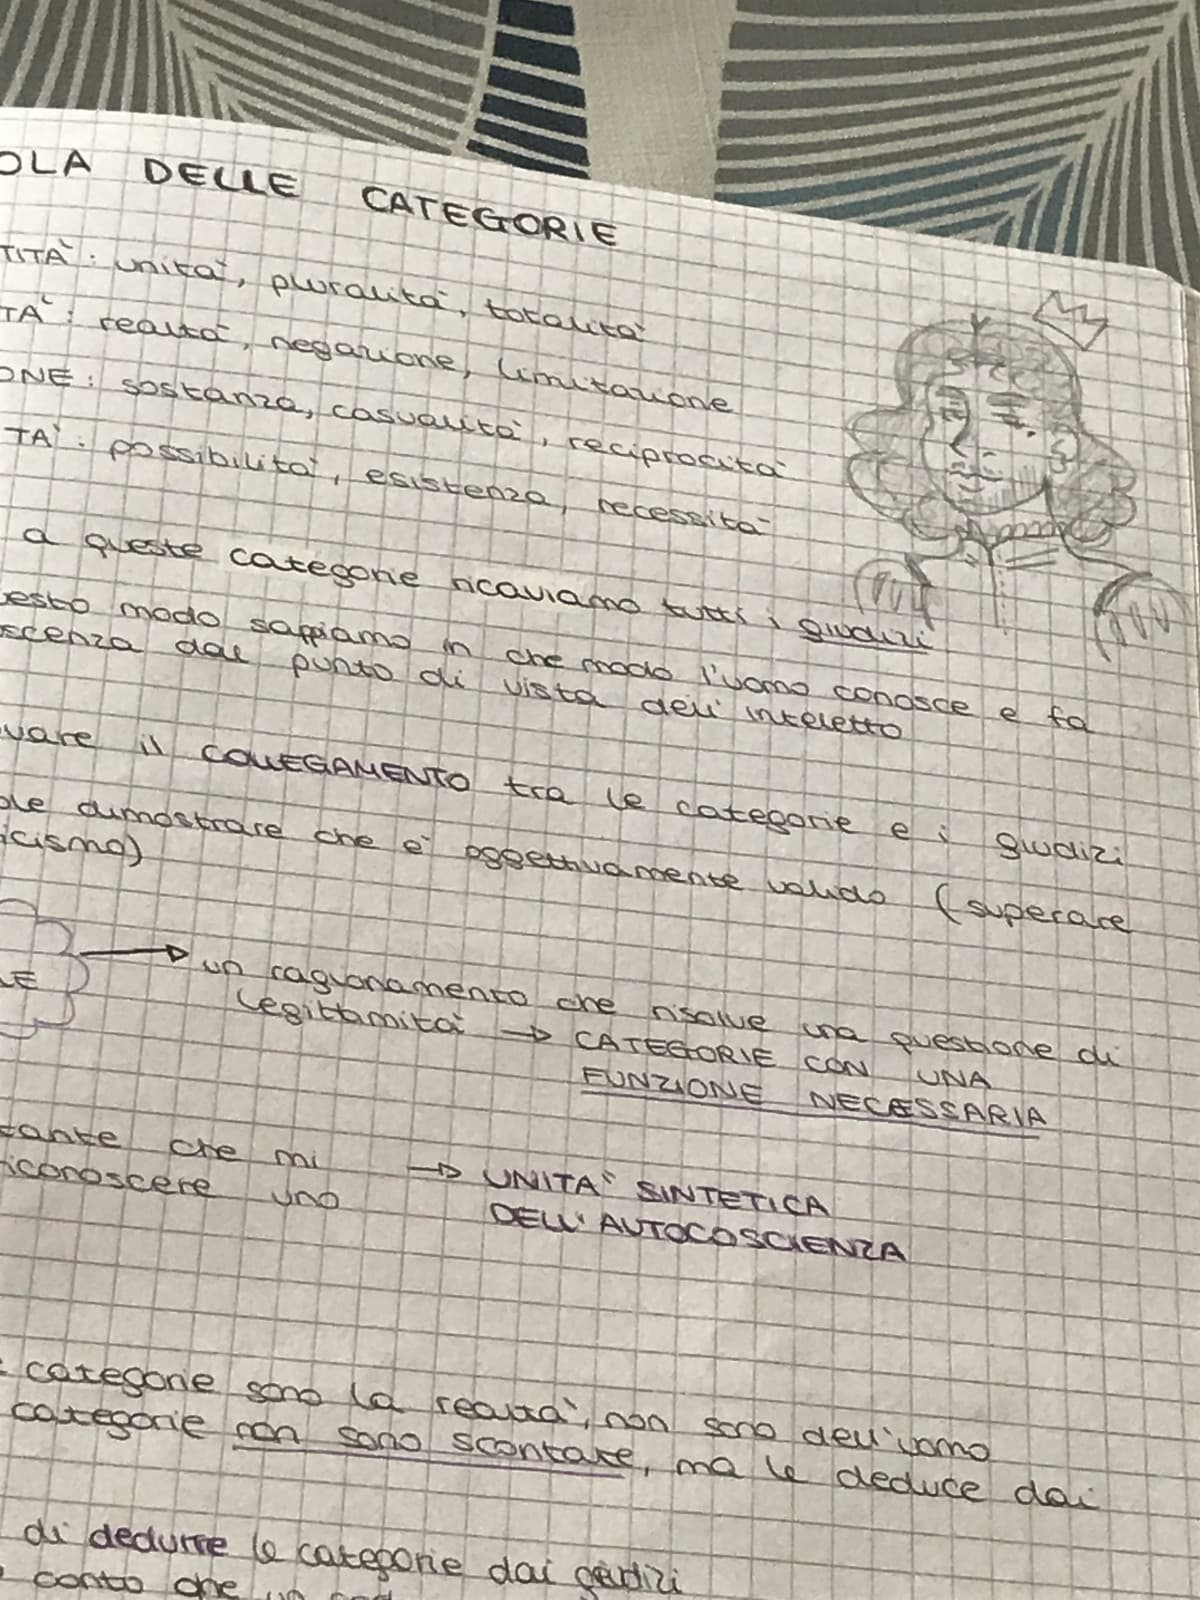 OLA DELLE CATEGORIE
TITÀ: unità, pluralità, totalità
TÀ: realtà, negazione, limitazione
ONE: sostanza, casualità, reciprocità
TÀ: possibilità, esistenza, necessità
a queste categorie ricaviamo tutti i giudizi
esto modo sappiamo in che modo l'uomo conosce e fa
scenza dal punto di vista dell'inteletto
vare il COLLEGAMENTO tra le categorie e i giudizi
ole dimostrare che è oggettivamente valido (superare
icismo)
un ragionamento che risolve una questione di
LE
legittimità → CATEGORIE CON UNA
FUNZIONE NECESSARIA
tante che mi → UNITÀ SINTETICA
riconoscere uno
DELL'AUTOCOSCIENZA
categorie sono la realtà, non sono dell'uomo
categorie non sono scontate, ma le deduce dai
di dedurre le categorie dai giudizi
conto che un